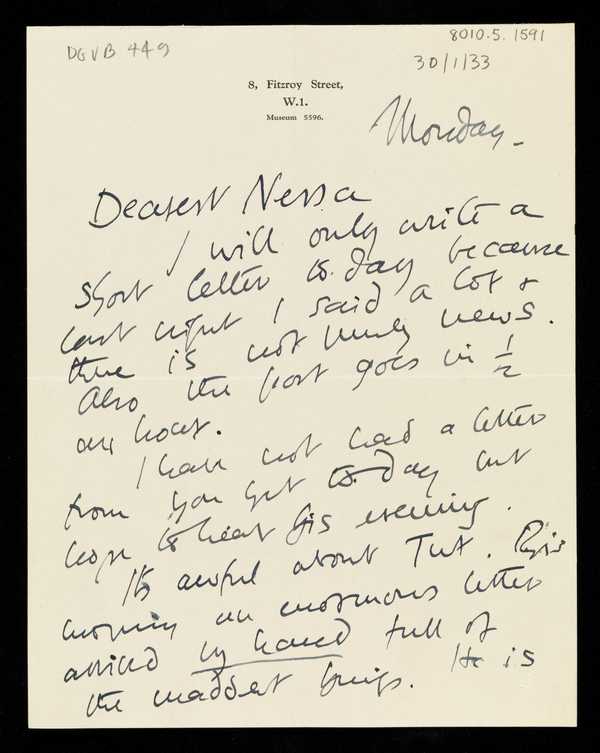 DGVB 449
8010.5.1591
30/1/33
8, Fitzroy Street,
W.1.
Museum 5596.
Monday.
Dearest Nessa
I will only write a
short letter to day because
last night I said a lot &
there is not much news.
Also the post goes in 1/2
an hour.
I have not had a letter
from you yet to day but
hope to hear this evening.
Its awful about Tut. This
morning an enormous letter
arrived by hand full of
the maddest things. He is